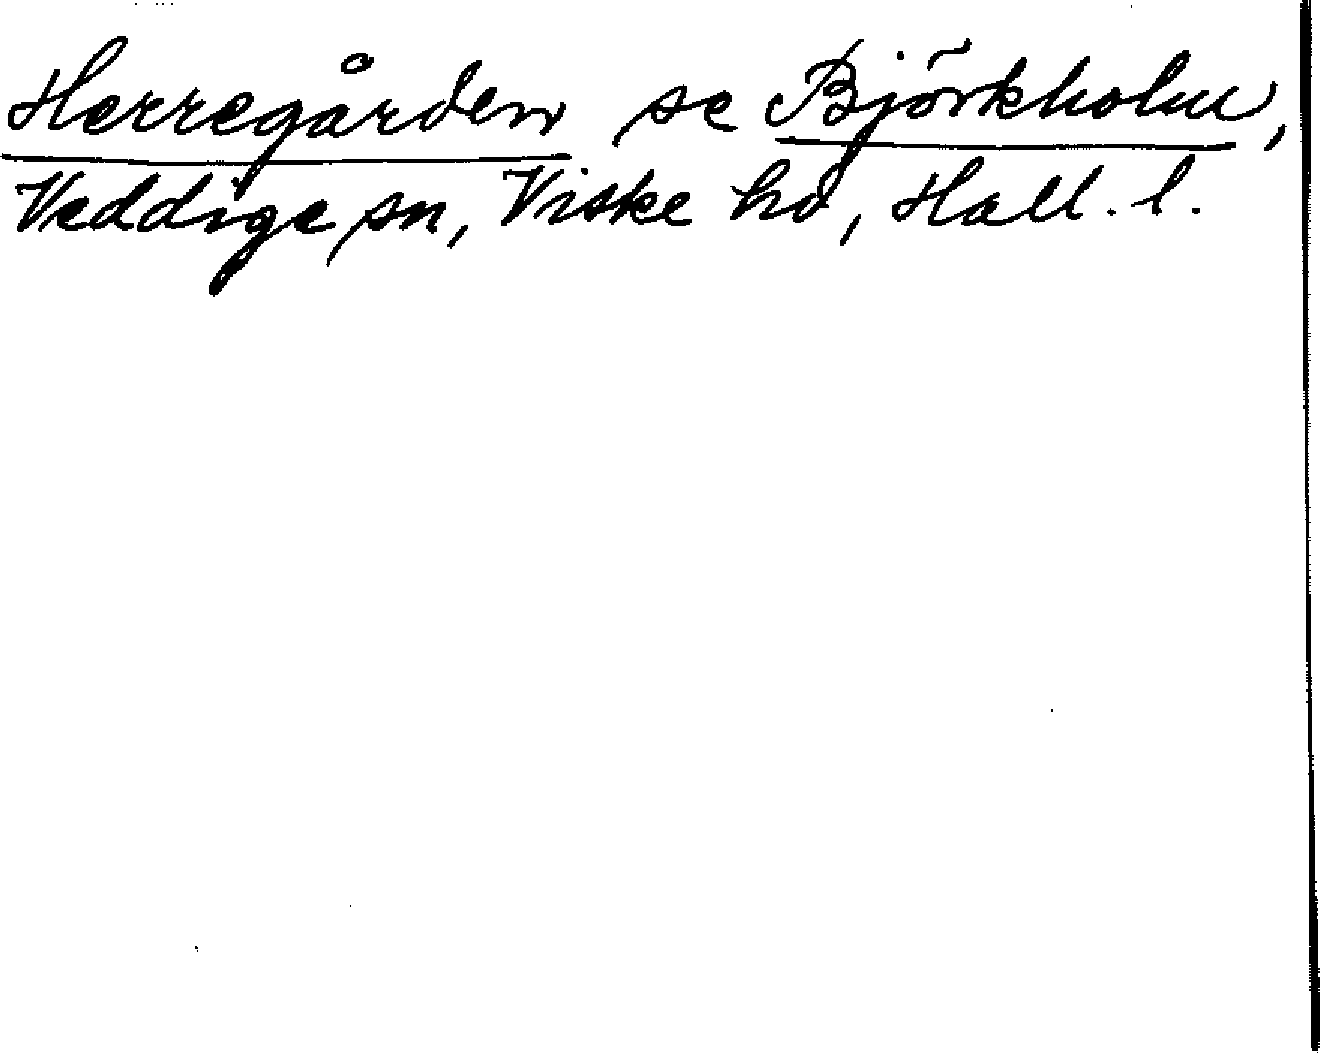 Herregården se Björkholm,
Veddige sn, Viske hd, Hall. l.